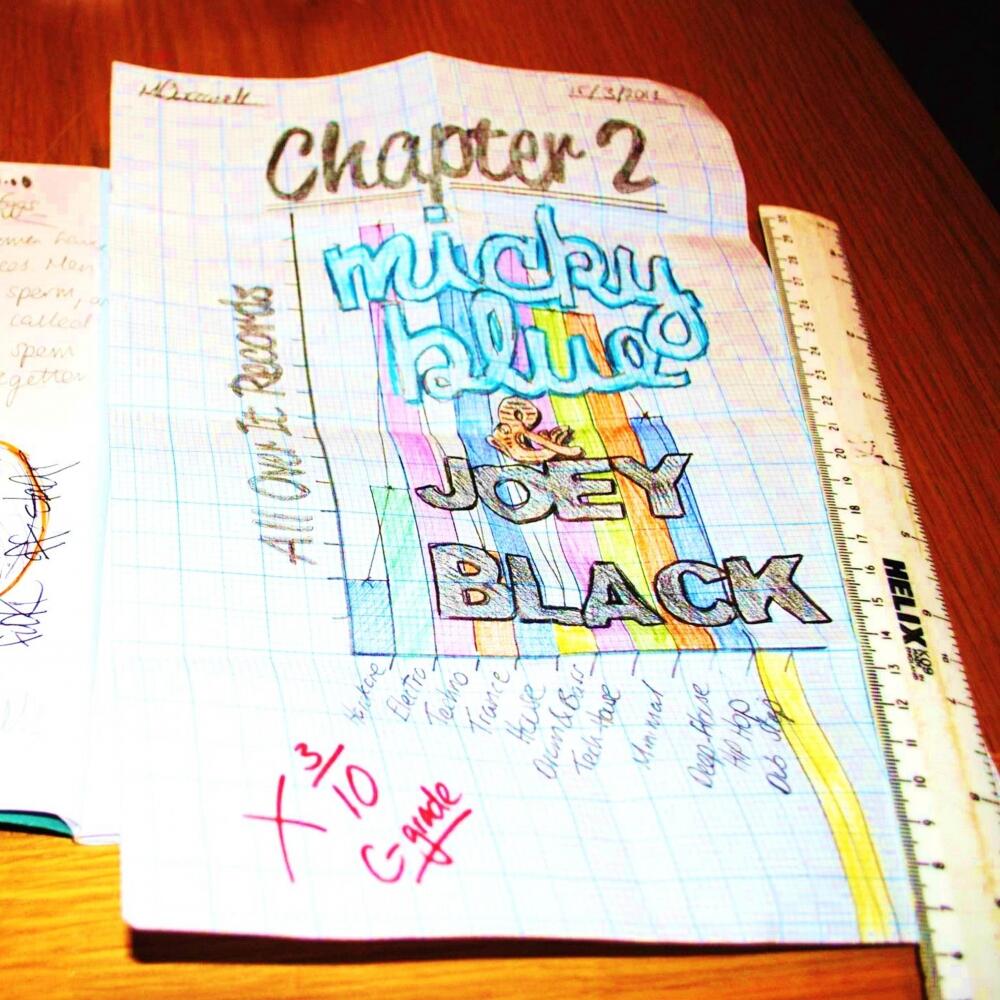 15/3/2012
Chapter 2
micky
blue
&
JOEY
BLACK
All Over It Records
Hardcore
Electro
Techno
Trance
House
Drum & Bass
Tech House
Minimal
Deep House
Hip Hop
Dub Step
X 3/10
C-grade
HELIX
Eggs
sperm, a
called
sperm